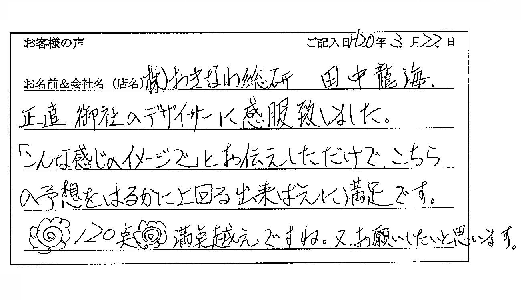 お客様の声 ご記入日H20年3月22日
お名前&会社名(店名)(株)おきなわ総研 田中龍海
正直 御社のデザイナーに感服致しました。
「こんな感じのイメージで」とお伝えしただけで こちら
の予想をはるかに上回る出来ばえに満足です。
120点 満点越えですね。又お願いしたいと思います。